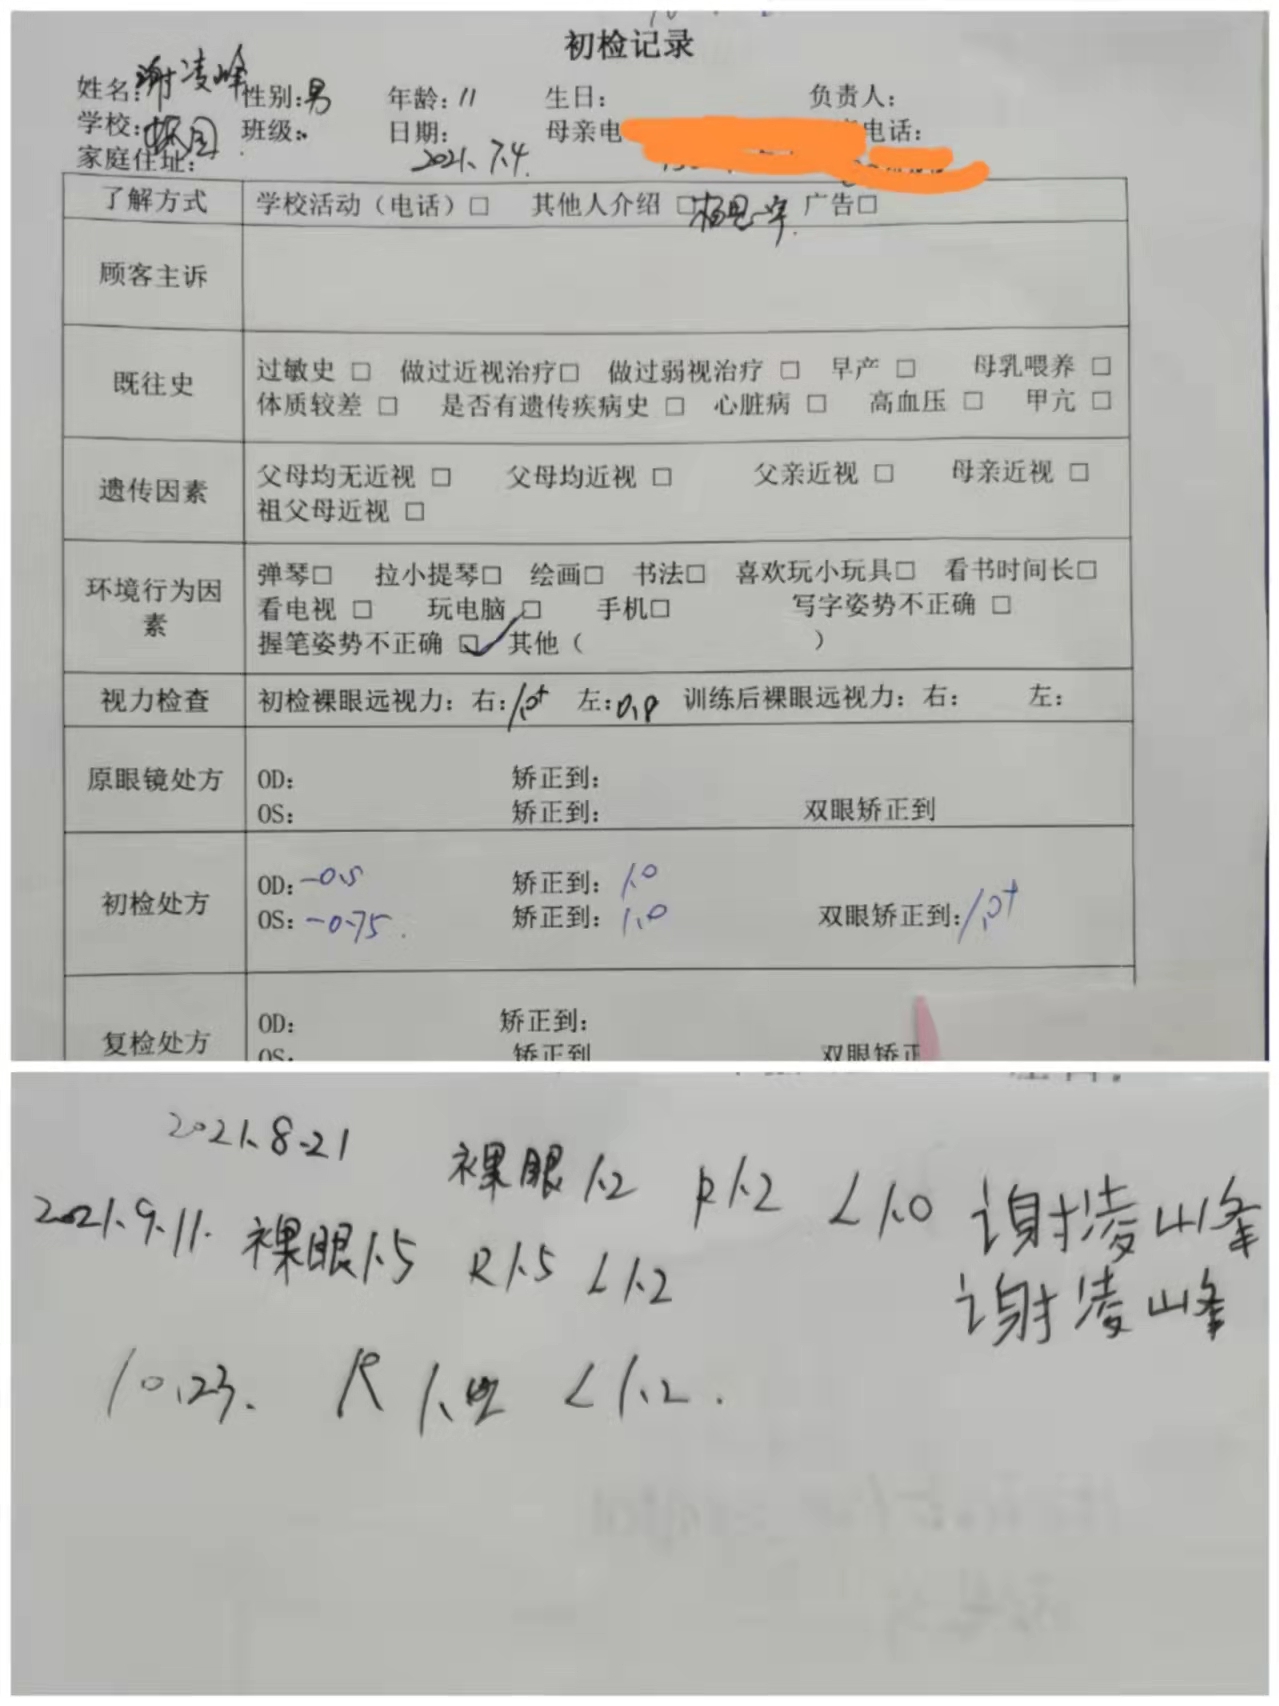 初检记录
姓名:谢凌峰 性别:男 年龄:11 生日: 负责人:
学校:振园 班级: 日期: 母亲电 电话:
家庭住址: 2021.7.4.
了解方式 学校活动（电话）□ 其他人介绍 □ 广告□
顾客主诉
既往史 过敏史 □ 做过近视治疗□ 做过弱视治疗 □ 早产 □ 母乳喂养 □
体质较差 □ 是否有遗传疾病史 □ 心脏病 □ 高血压 □ 甲亢 □
遗传因素 父母均无近视 □ 父母均近视 □ 父亲近视 □ 母亲近视 □
祖父母近视 □
环境行为因素 弹琴□ 拉小提琴□ 绘画□ 书法□ 喜欢玩小玩具□ 看书时间长□
看电视 □ 玩电脑 □ 手机□ 写字姿势不正确 □
握笔姿势不正确 ☑ 其他（ ）
视力检查 初检裸眼远视力: 右:1.0+ 左:0.8 训练后裸眼远视力: 右: 左:
原眼镜处方 OD: 矫正到:
OS: 矫正到: 双眼矫正到
初检处方 OD:-0.5 矫正到: 1.0
OS:-0.75 矫正到: 1.0 双眼矫正到:1.0+
复检处方 OD: 矫正到:
OS: 矫正到 双眼矫正
2021.8.21 裸眼1.2 R1.2 L1.0 谢凌峰
2021.9.11. 裸眼1.5 R1.5 L1.2 谢凌峰
10.23. R L1.2.